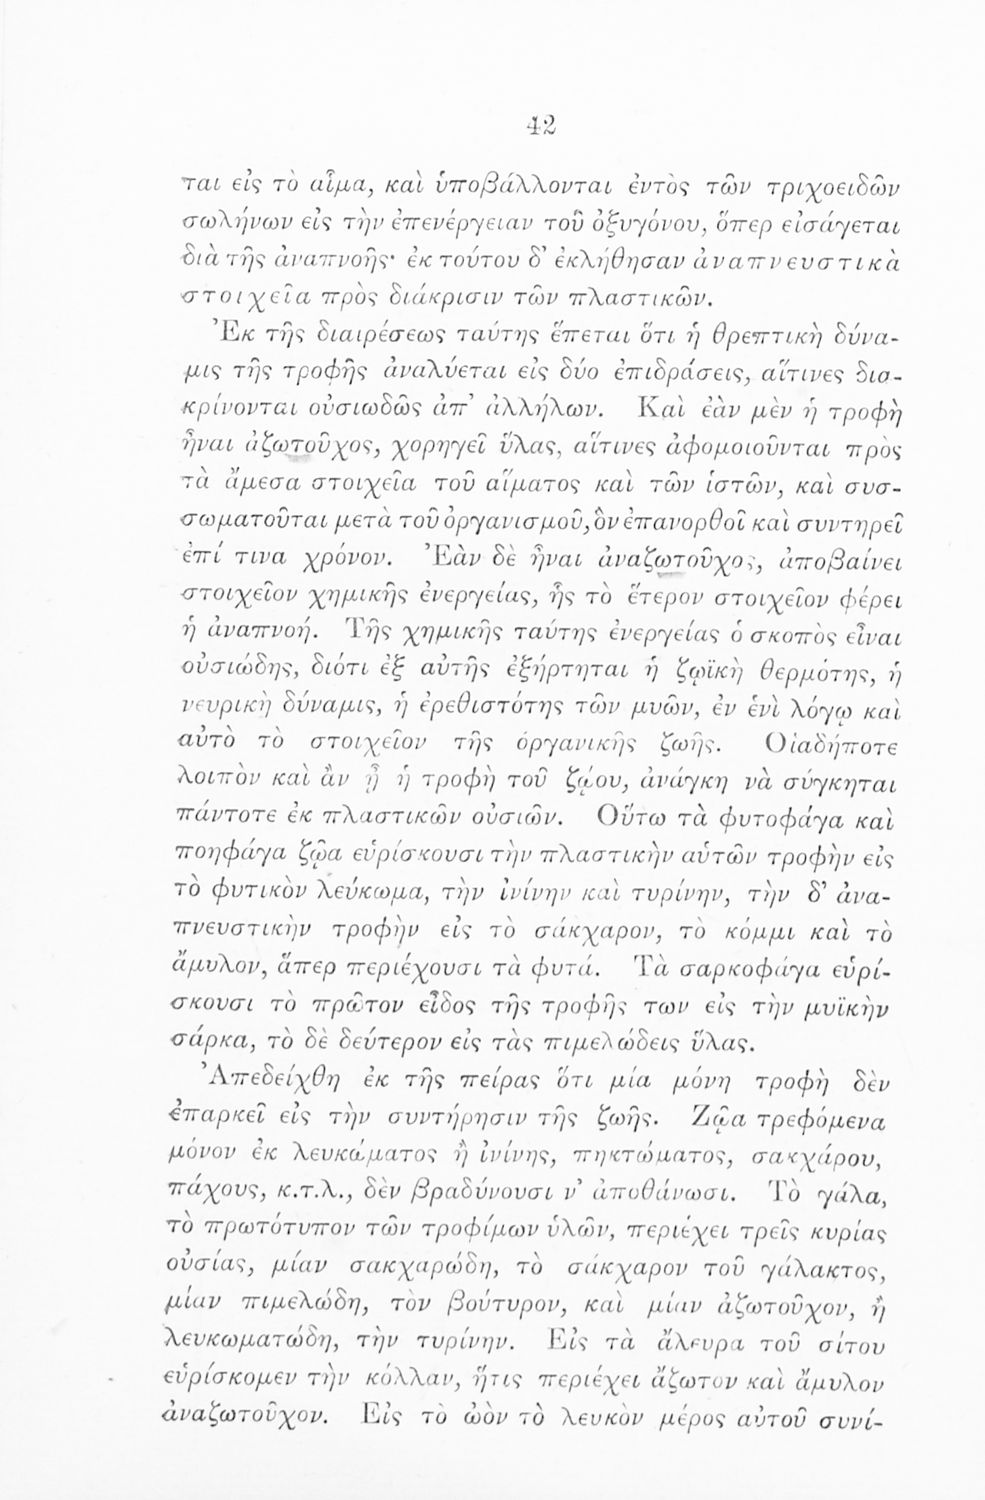 42
ται εἰς τὸ αἷμα, καὶ ὑποβάλλονται ἐντὸς τῶν τριχοειδῶν
σωλήνων εἰς τὴν ἐπενέργειαν τοῦ ὀξυγόνου, ὅπερ εἰσάγεται
διὰ τῆς ἀναπνοῆς· ἐκ τούτου δ’ ἐκλήθησαν ἀναπνευστικὰ
στοιχεῖα πρὸς διάκρισιν τῶν πλαστικῶν.
Ἐκ τῆς διαιρέσεως ταύτης ἕπεται ὅτι ἡ θρεπτικὴ δύνα-
μις τῆς τροφῆς ἀναλύεται εἰς δύο ἐπιδράσεις, αἵτινες δια-
κρίνονται οὐσιωδῶς ἀπ’ ἀλλήλων. Καὶ ἐὰν μὲν ἡ τροφὴ
ἦναι ἀζωτοῦχος, χορηγεῖ ὕλας, αἵτινες ἀφομοιοῦνται πρὸς
τὰ ἄμεσα στοιχεῖα τοῦ αἵματος καὶ τῶν ἱστῶν, καὶ συσ-
σωματοῦται μετὰ τοῦ ὀργανισμοῦ, ὃν ἐπανορθοῖ καὶ συντηρεῖ
ἐπί τινα χρόνον. Ἐὰν δὲ ἦναι ἀναζωτοῦχος, ἀποβαίνει
στοιχεῖον χημικῆς ἐνεργείας, ἧς τὸ ἕτερον στοιχεῖον φέρει
ἡ ἀναπνοή. Τῆς χημικῆς ταύτης ἐνεργείας ὁ σκοπὸς εἶναι
οὐσιώδης, διότι ἐξ αὐτῆς ἐξήρτηται ἡ ζῳϊκὴ θερμότης, ἡ
νευρικὴ δύναμις, ἡ ἐρεθιστότης τῶν μυῶν, ἐν ἑνὶ λόγῳ καὶ
αὐτὸ τὸ στοιχεῖον τῆς ὀργανικῆς ζωῆς. Οἱαδήποτε
λοιπὸν καὶ ἂν ᾖ ἡ τροφὴ τοῦ ζῴου, ἀνάγκη νὰ σύγκηται
πάντοτε ἐκ πλαστικῶν οὐσιῶν. Οὕτω τὰ φυτοφάγα καὶ
ποηφάγα ζῷα εὑρίσκουσι τὴν πλαστικὴν αὑτῶν τροφὴν εἰς
τὸ φυτικὸν λεύκωμα, τὴν ἰνίνην καὶ τυρίνην, τὴν δ’ ἀνα-
πνευστικὴν τροφὴν εἰς τὸ σάκχαρον, τὸ κόμμι καὶ τὸ
ἄμυλον, ἅπερ περιέχουσι τὰ φυτά. Τὰ σαρκοφάγα εὑρί-
σκουσι τὸ πρῶτον εἶδος τῆς τροφῆς των εἰς τὴν μυϊκὴν
σάρκα, τὸ δὲ δεύτερον εἰς τὰς πιμελώδεις ὕλας.
Ἀπεδείχθη ἐκ τῆς πείρας ὅτι μία μόνη τροφὴ δὲν
ἐπαρκεῖ εἰς τὴν συντήρησιν τῆς ζωῆς. Ζῷα τρεφόμενα
μόνον ἐκ λευκώματος ἢ ἰνίνης, πηκτώματος, σακχάρου,
πάχους, κ.τ.λ., δὲν βραδύνουσι ν’ ἀποθάνωσι. Τὸ γάλα,
τὸ πρωτότυπον τῶν τροφίμων ὑλῶν, περιέχει τρεῖς κυρίας
οὐσίας, μίαν σακχαρώδη, τὸ σάκχαρον τοῦ γάλακτος,
μίαν πιμελώδη, τὸν βούτυρον, καὶ μίαν ἀζωτοῦχον, ἢ
λευκωματώδη, τὴν τυρίνην. Εἰς τὰ ἄλευρα τοῦ σίτου
εὑρίσκομεν τὴν κόλλαν, ἥτις περιέχει ἄζωτον καὶ ἄμυλον
ἀναζωτοῦχον. Εἰς τὸ ὠὸν τὸ λευκὸν μέρος αὐτοῦ συνί-